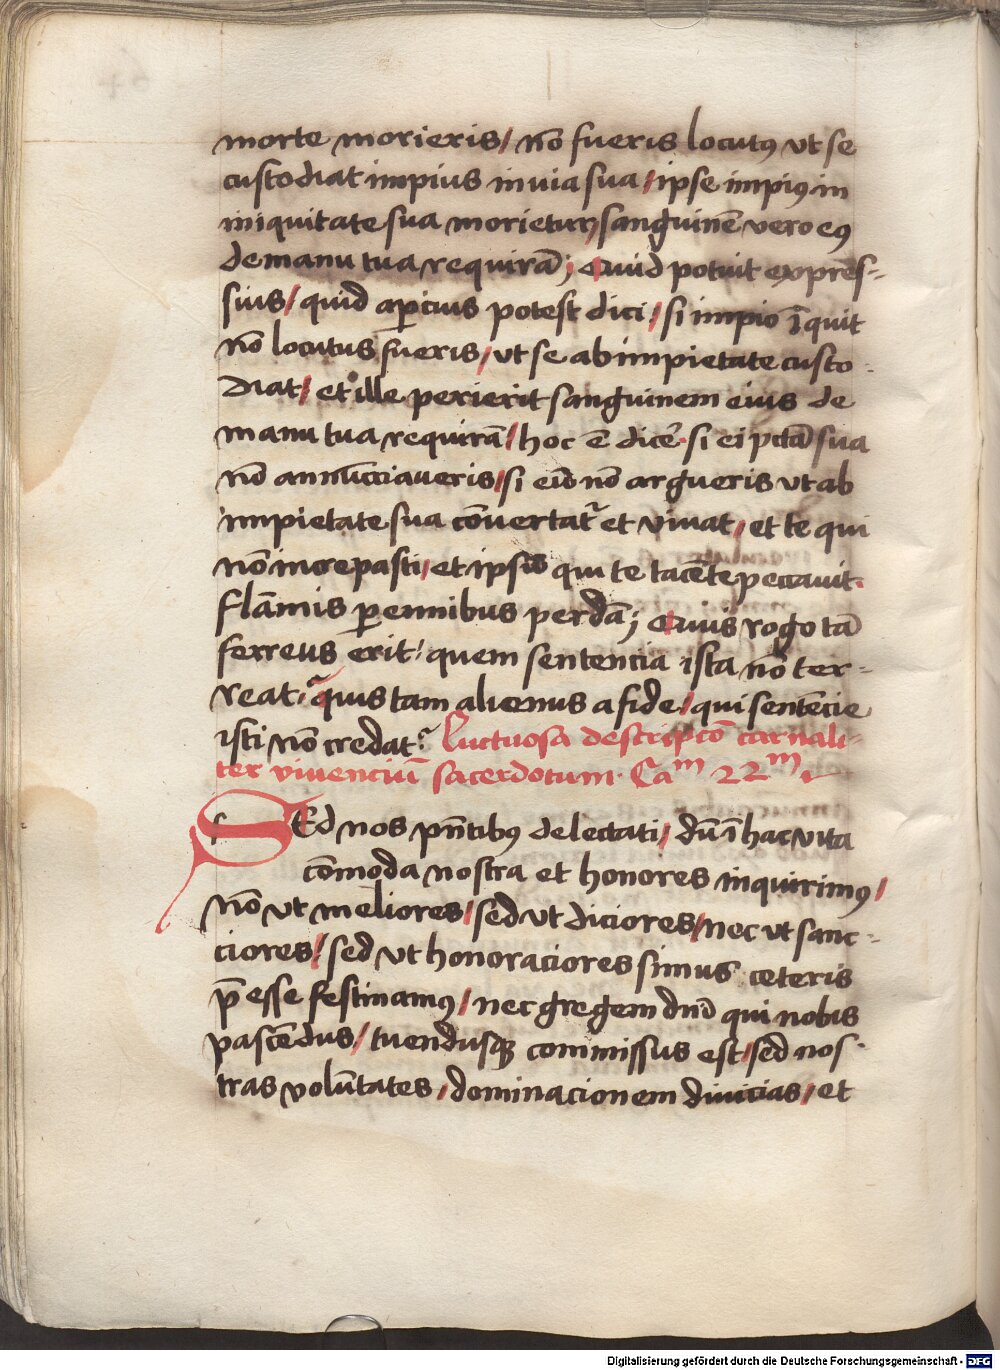 morte morieris/ nō fueris locutꝰ vt se
custodiat impius in via sua/ ipse impiꝰ in
iniquitate sua morietur/ sanguinē vero eꝰ
de manu tua requirā; Quid potuit expres-
sius/ quid apcius potest dici/ si impio īquit
nō locutus fueris/ vt se ab impietate custo-
diat/ et ille perierit sanguinem eius de
manu tua requirā/ hoc ē dicē· si ei pctā sua
nō annūcciaveris/ si eū nō argueris vt ab
impietate sua cōvertatᷣ et vivat/ et te qui
nō increpasti/ et ipsū qui te tacēte peccauit·
flāmis ꝑennibus perdā; Quis rogo tā
ferreus erit/ quem sentencia ista nō ter-
reat/ quis tam alienus a fide/ qui sentēcie
isti nō credat? Luctuosa descripcō carnali-
ter vivenciū sacerdotum· Caᵐ 22ᵐ
SEd nos pn̄tibꝰ delectati/ dū ī hac vita
cōmoda nostra et honores inquirimꝰ/
nō vt meliores/ sed vt diciores/ nec vt sanc-
ciores/ sed vt honoraciores simus ceteris
p̄esse festinamꝰ/ nec gregem dn̄i qui nobis
pascēdus/ tuendusqꝫ commissus est/ sed nos-
tras volūtates/ dominacionem divicias/ et
Digitalisierung gefördert durch die Deutsche Forschungsgemeinschaft - DFG